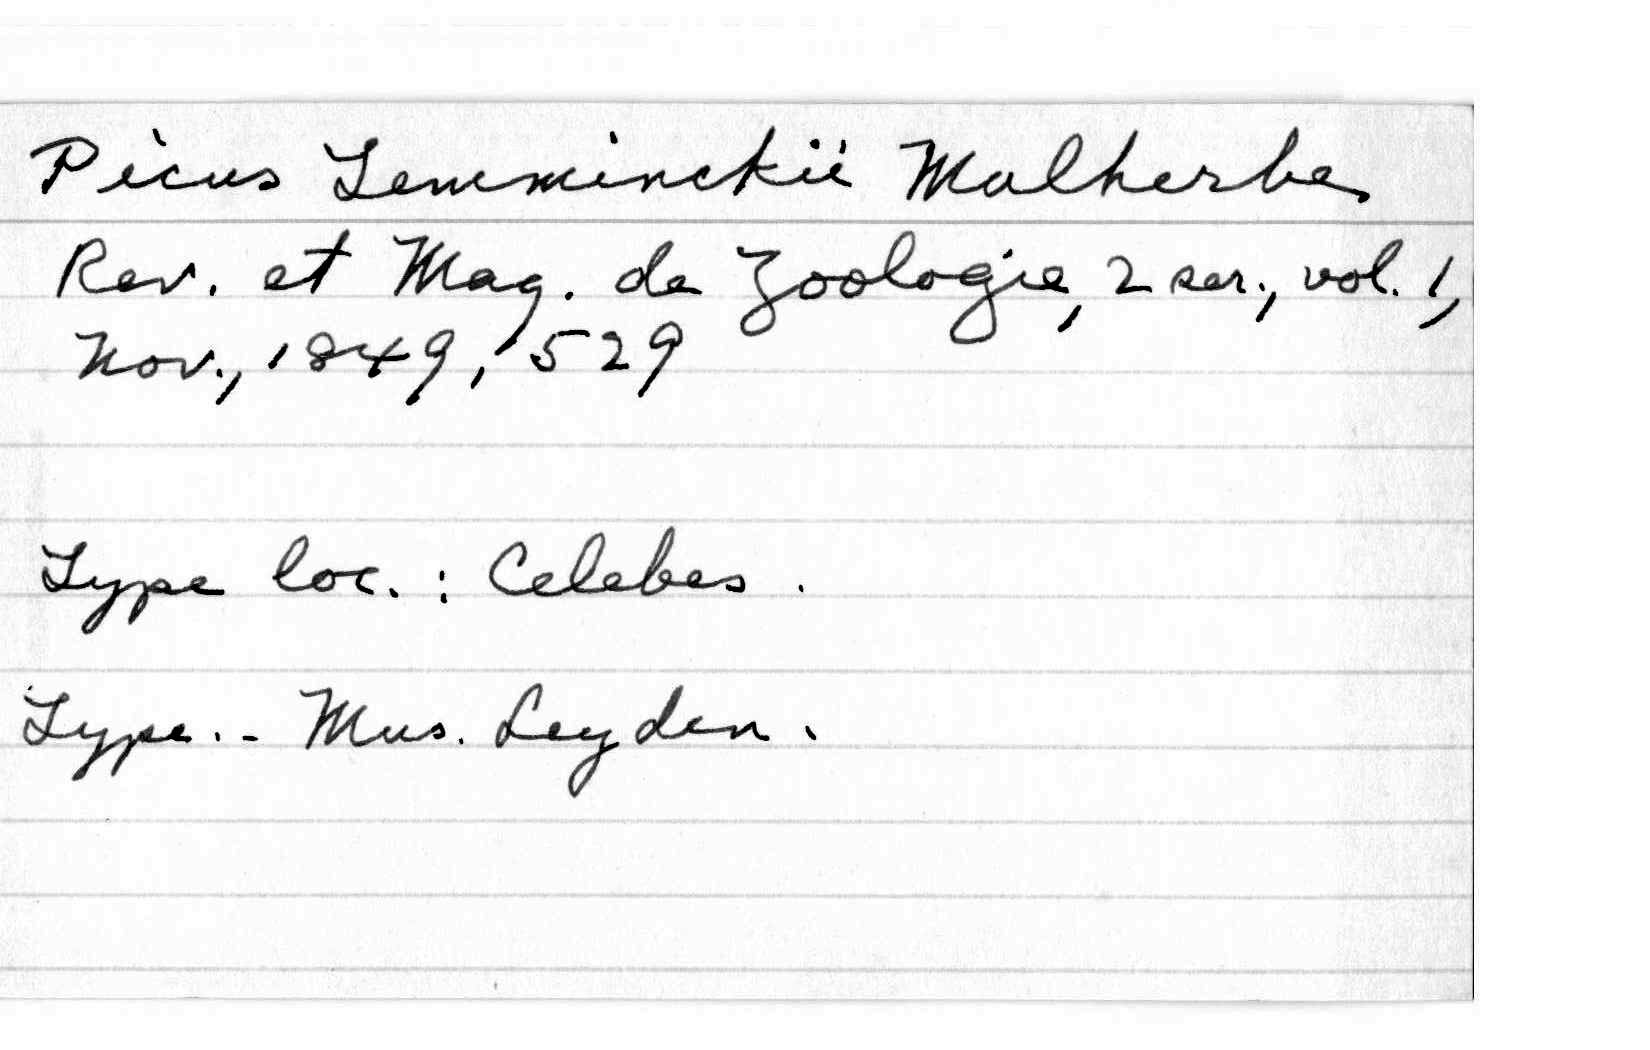 Picus Temminckii Malherbe
Rev. et Mag. de Zoologie, 2 ser., vol. 1,
Nov., 1849, 529
Type loc. : Celebes .
Type. - Mus. Leyden .